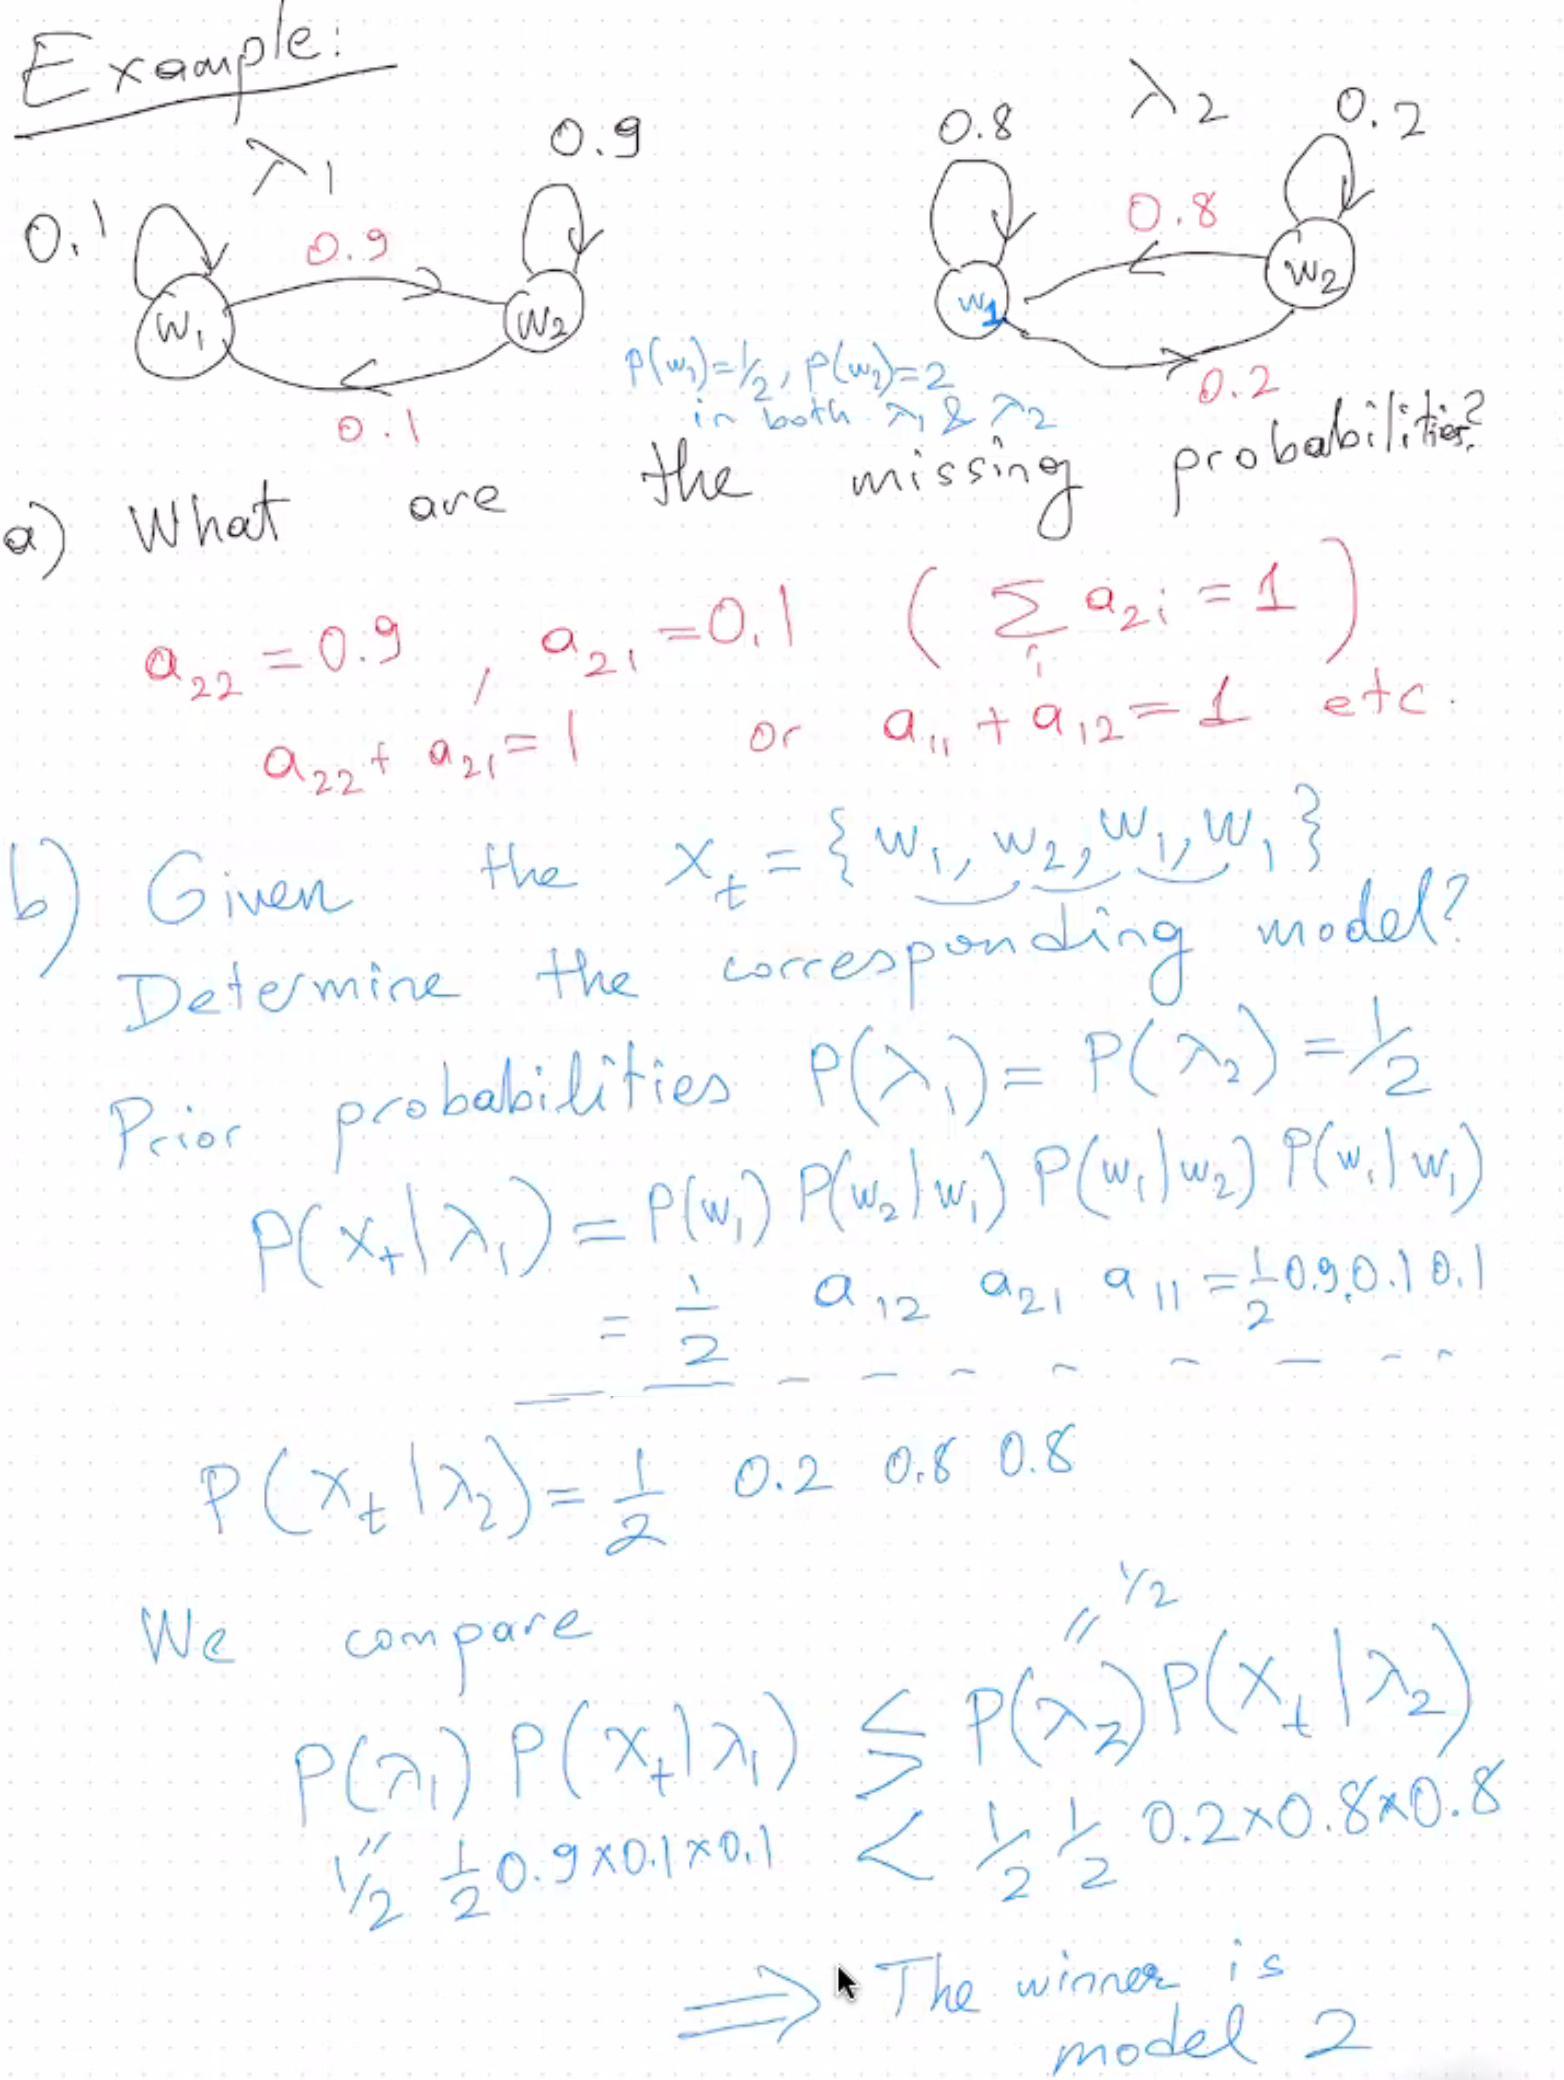 Example:
λ1 λ2
0.1 0.9 0.9 0.8 0.8 0.2
w1 w2 w1 w2
0.1 0.2
P(w1)=1/2, P(w2)=2
in both λ1 & λ2
a) What are the missing probabilities?
a22 = 0.9 , a21 = 0.1 ( Σi a2i = 1 )
a22 + a21 = 1 or a11 + a12 = 1 etc.
b) Given the xt = { w1, w2, w1, w1 }
Determine the corresponding model?
Prior probabilities P(λ1) = P(λ2) = 1/2
P(xt|λ1) = P(w1) P(w2|w1) P(w1|w2) P(w1|w1)
= 1/2 a12 a21 a11 = 1/2 0.9.0.1 0.1
P(xt|λ2) = 1/2 0.2 0.8 0.8
We compare
" 1/2
P(λ1) P(xt|λ1) ≤ > P(λ2) P(xt|λ2)
" 1/2 1/2 0.9x0.1x0.1 < 1/2 1/2 0.2x0.8x0.8
⟹ The winner is
model 2